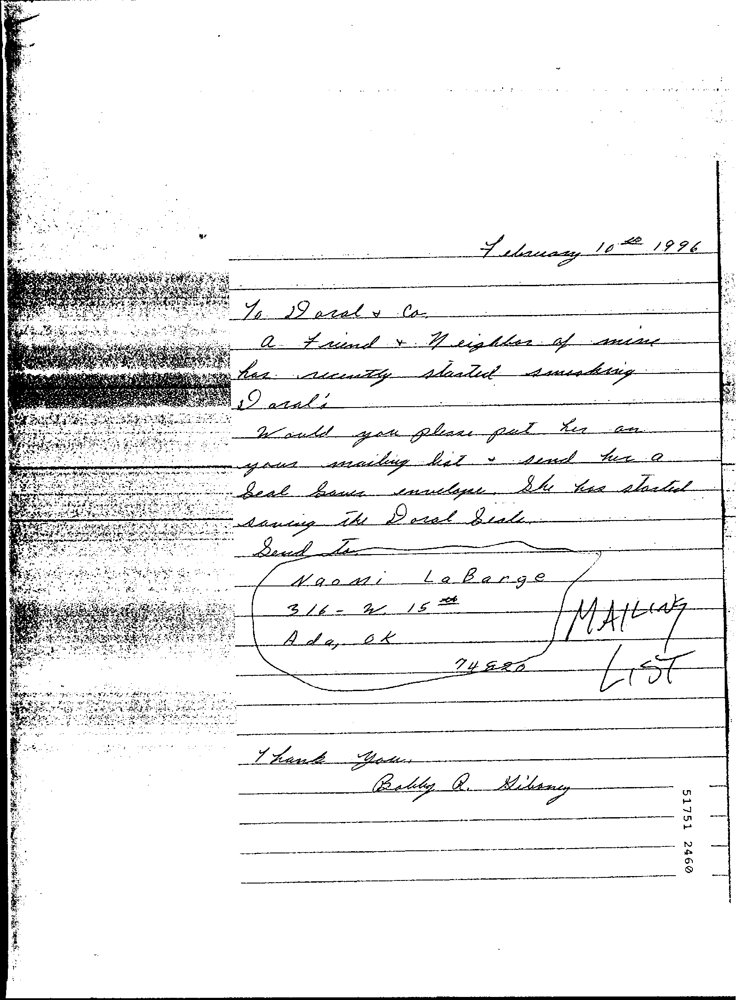 February 10th 1996
To Doral & Co.
A Friend & Neighbor of mine
has recently started smoking
Doral's
Would you please put her on
your mailing list & send her a
Seal Saver envelope. She has started
saving the Doral Seals.
Send to
Naomi LaBarge
316 - W. 15th
Ada, OK
74820
MAILING
LIST
Thank You,
Bobby R.
51751 2460